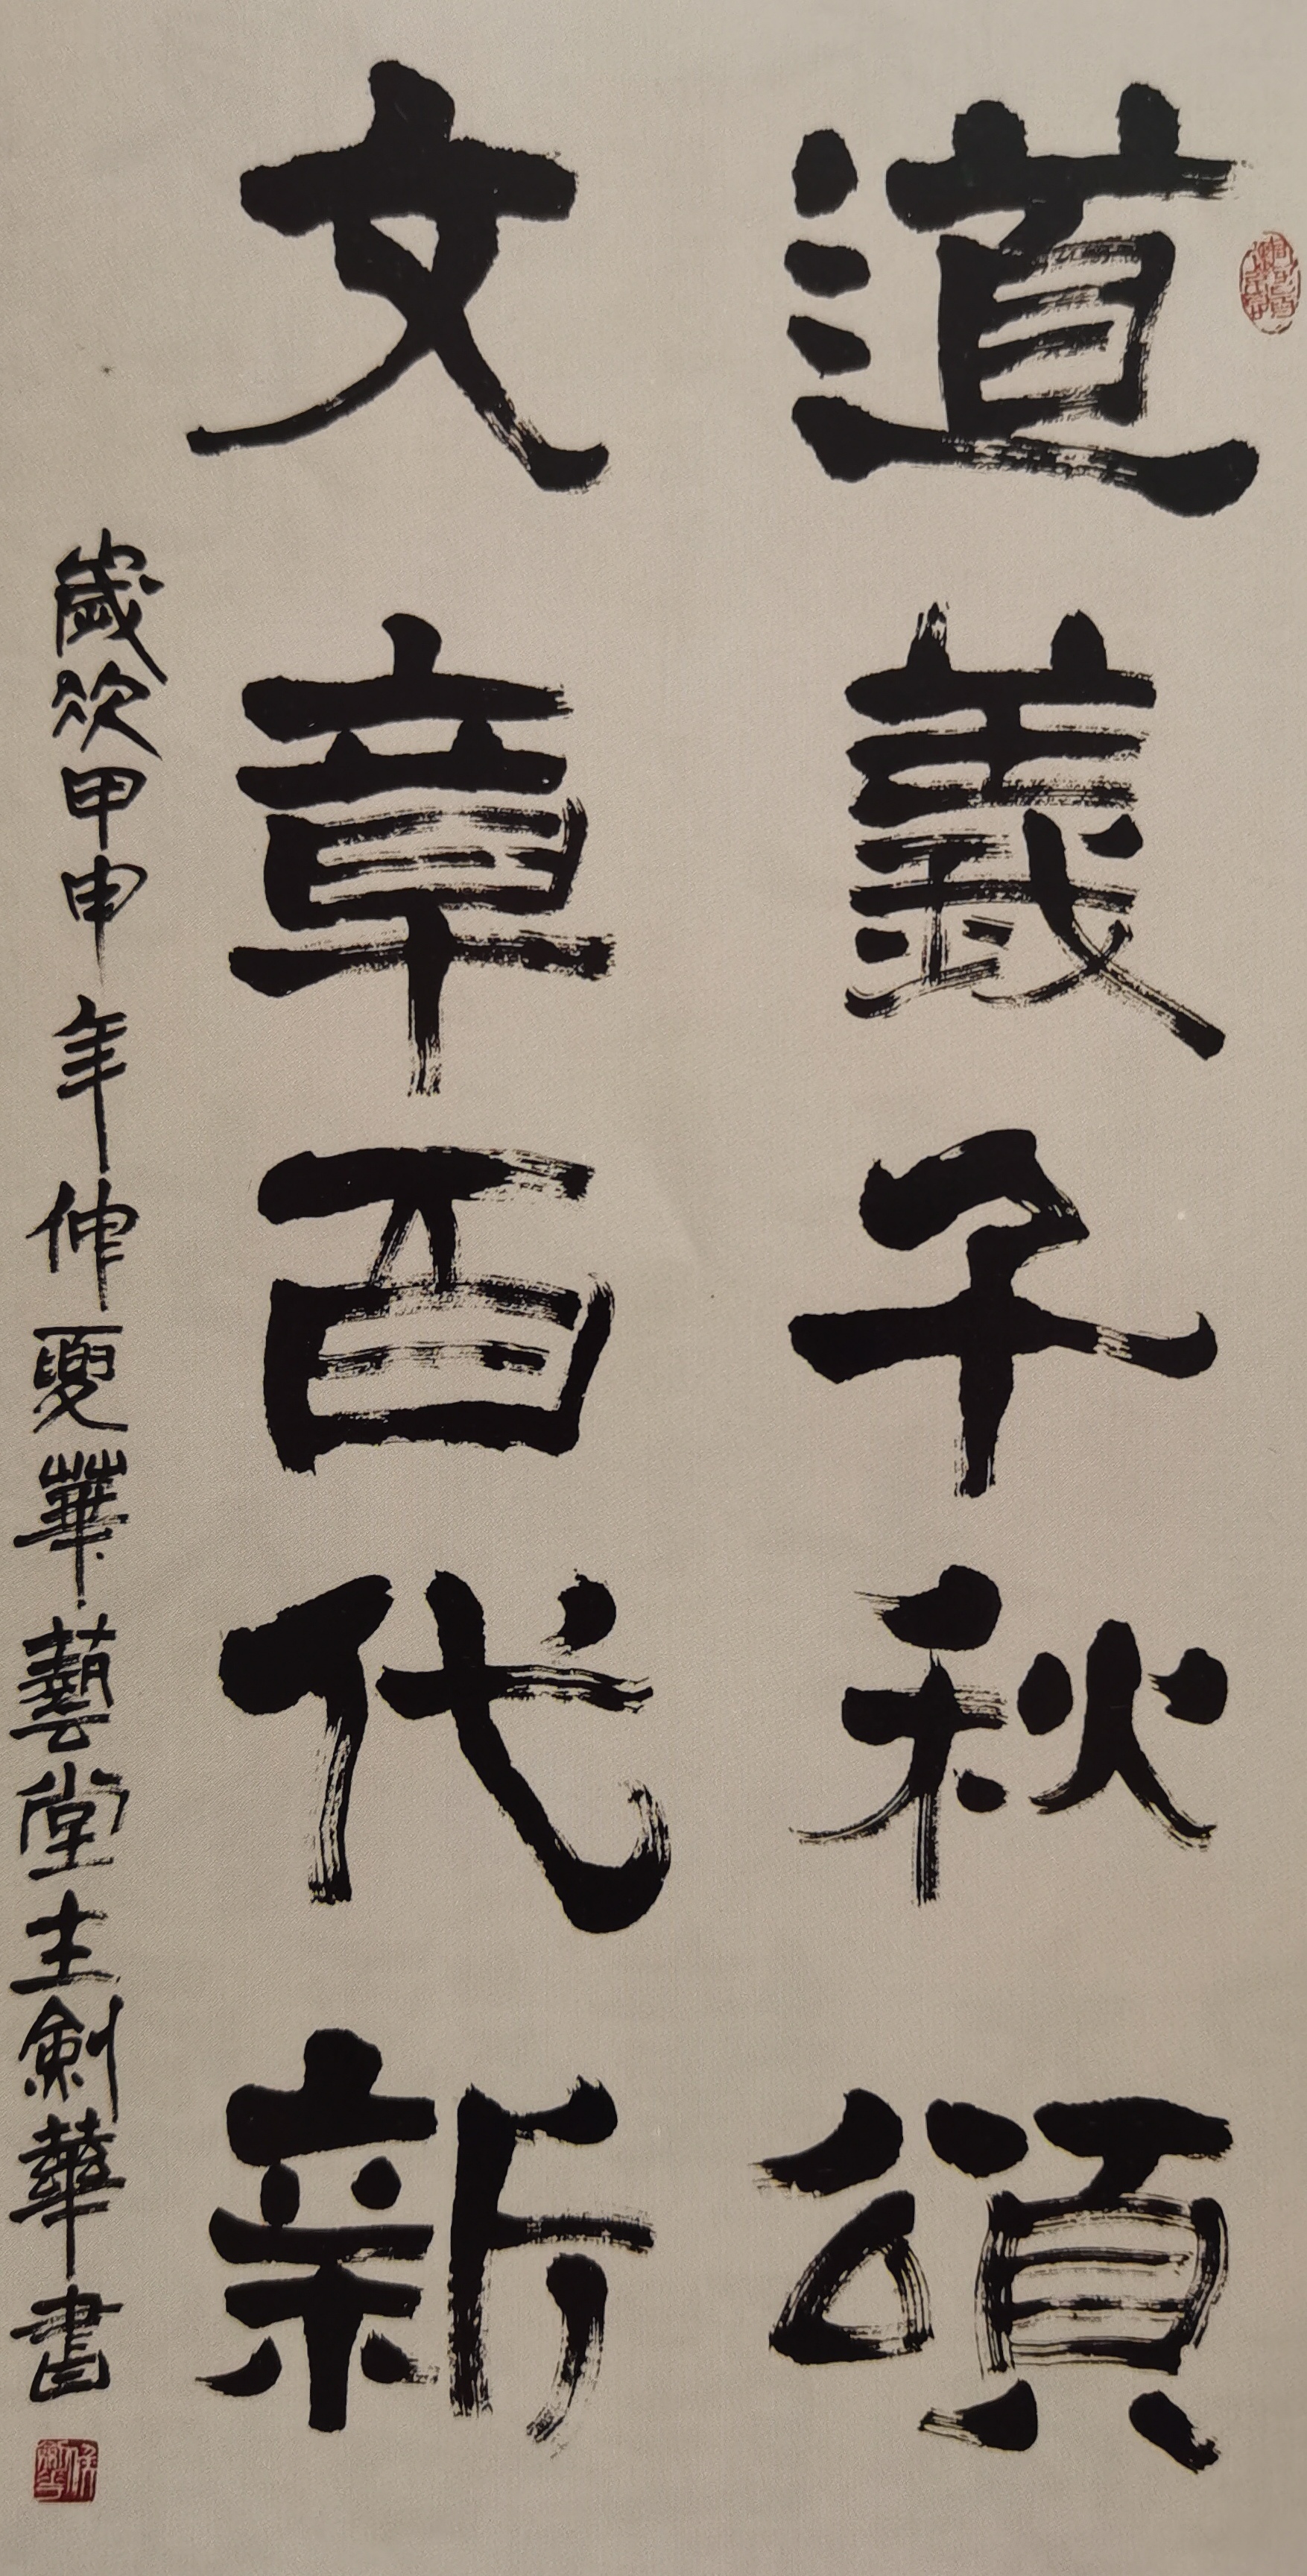 道義千秋頌
文章百代新
歲次甲申年仲夏華藝堂主劍華書